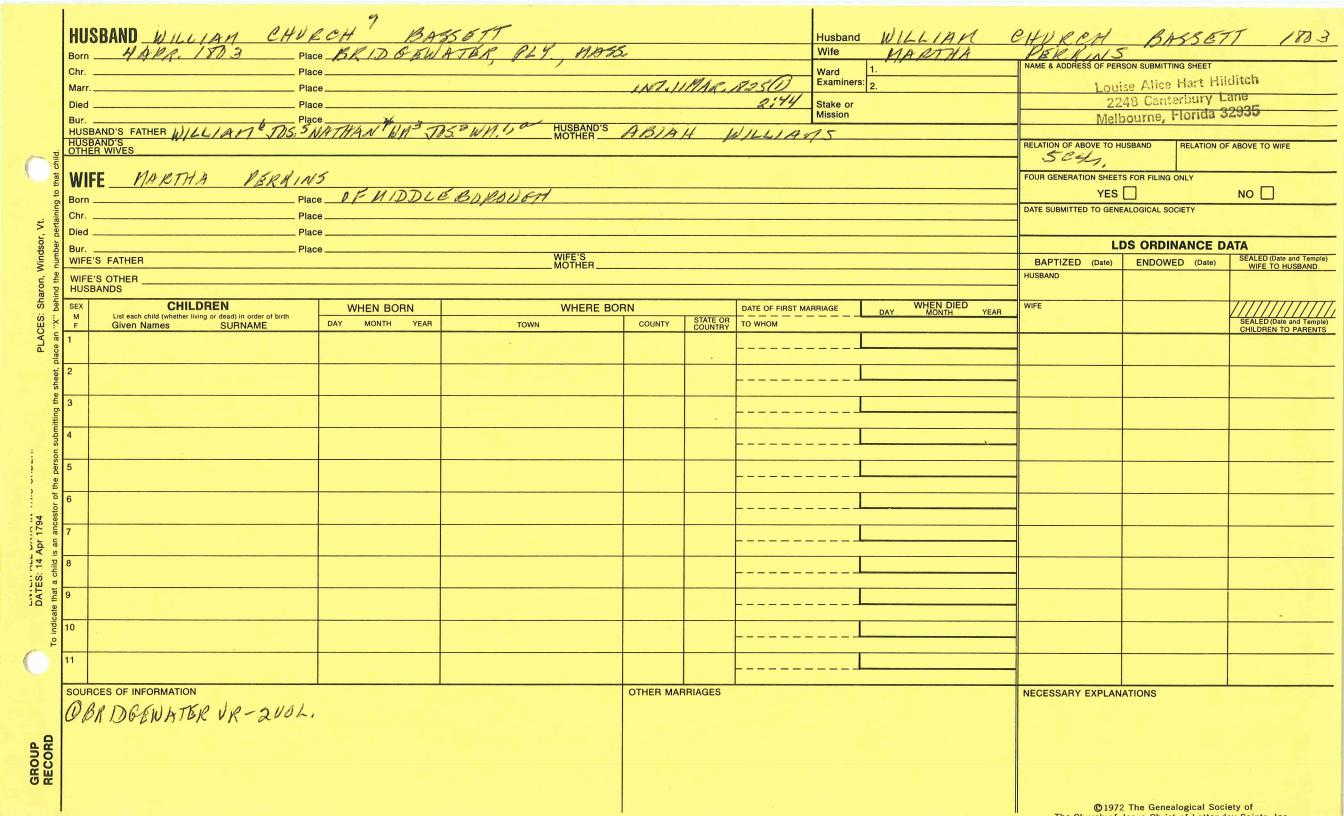 HUSBAND WILLIAM CHURCH 7 BASSETT
Born 4 APR. 1803 Place BRIDGEWATER, PLY., MASS
Chr. Place
Marr. Place INT. 11 MAR. 1825 ①
Died Place 2:44
Bur. Place
HUSBAND'S FATHER WILLIAM 6 JOS. 5 NATHAN 4 WM 3 JOS. 2 WM. 1 HUSBAND'S MOTHER ABIAH WILLIAMS
HUSBAND'S OTHER WIVES
WIFE MARTHA PERKINS
Born Place OF MIDDLEBOROUGH
Chr. Place
Died Place
Bur. Place
WIFE'S FATHER WIFE'S MOTHER
WIFE'S OTHER HUSBANDS
Husband WILLIAM CHURCH BASSETT 1803
Wife MARTHA PERKINS
Ward Examiners: 1.
2.
Stake or Mission
NAME & ADDRESS OF PERSON SUBMITTING SHEET
Louise Alice Hart Hilditch
2248 Canterbury Lane
Melbourne, Florida 32935
RELATION OF ABOVE TO HUSBAND RELATION OF ABOVE TO WIFE
FOUR GENERATION SHEETS FOR FILING ONLY
YES NO
DATE SUBMITTED TO GENEALOGICAL SOCIETY
LDS ORDINANCE DATA
BAPTIZED (Date) ENDOWED (Date) SEALED (Date and Temple) WIFE TO HUSBAND
HUSBAND
WIFE
SEALED (Date and Temple) CHILDREN TO PARENTS
SEX M F
CHILDREN
List each child (whether living or dead) in order of birth
Given Names SURNAME
WHEN BORN
DAY MONTH YEAR
WHERE BORN
TOWN COUNTY STATE OR COUNTRY
DATE OF FIRST MARRIAGE
TO WHOM
WHEN DIED
DAY MONTH YEAR
1
2
3
4
5
6
7
8
9
10
11
SOURCES OF INFORMATION
① BRIDGEWATER VR-2VOL.
OTHER MARRIAGES
NECESSARY EXPLANATIONS
©1972 The Genealogical Society of
The Church of Jesus Christ of Latter-day Saints, Inc.
PLACES: Sharon, Windsor, Vt.
DATES: 14 Apr 1794
To indicate that a child is an ancestor of the person submitting the sheet, place an "X" behind the number pertaining to that child.
GROUP RECORD